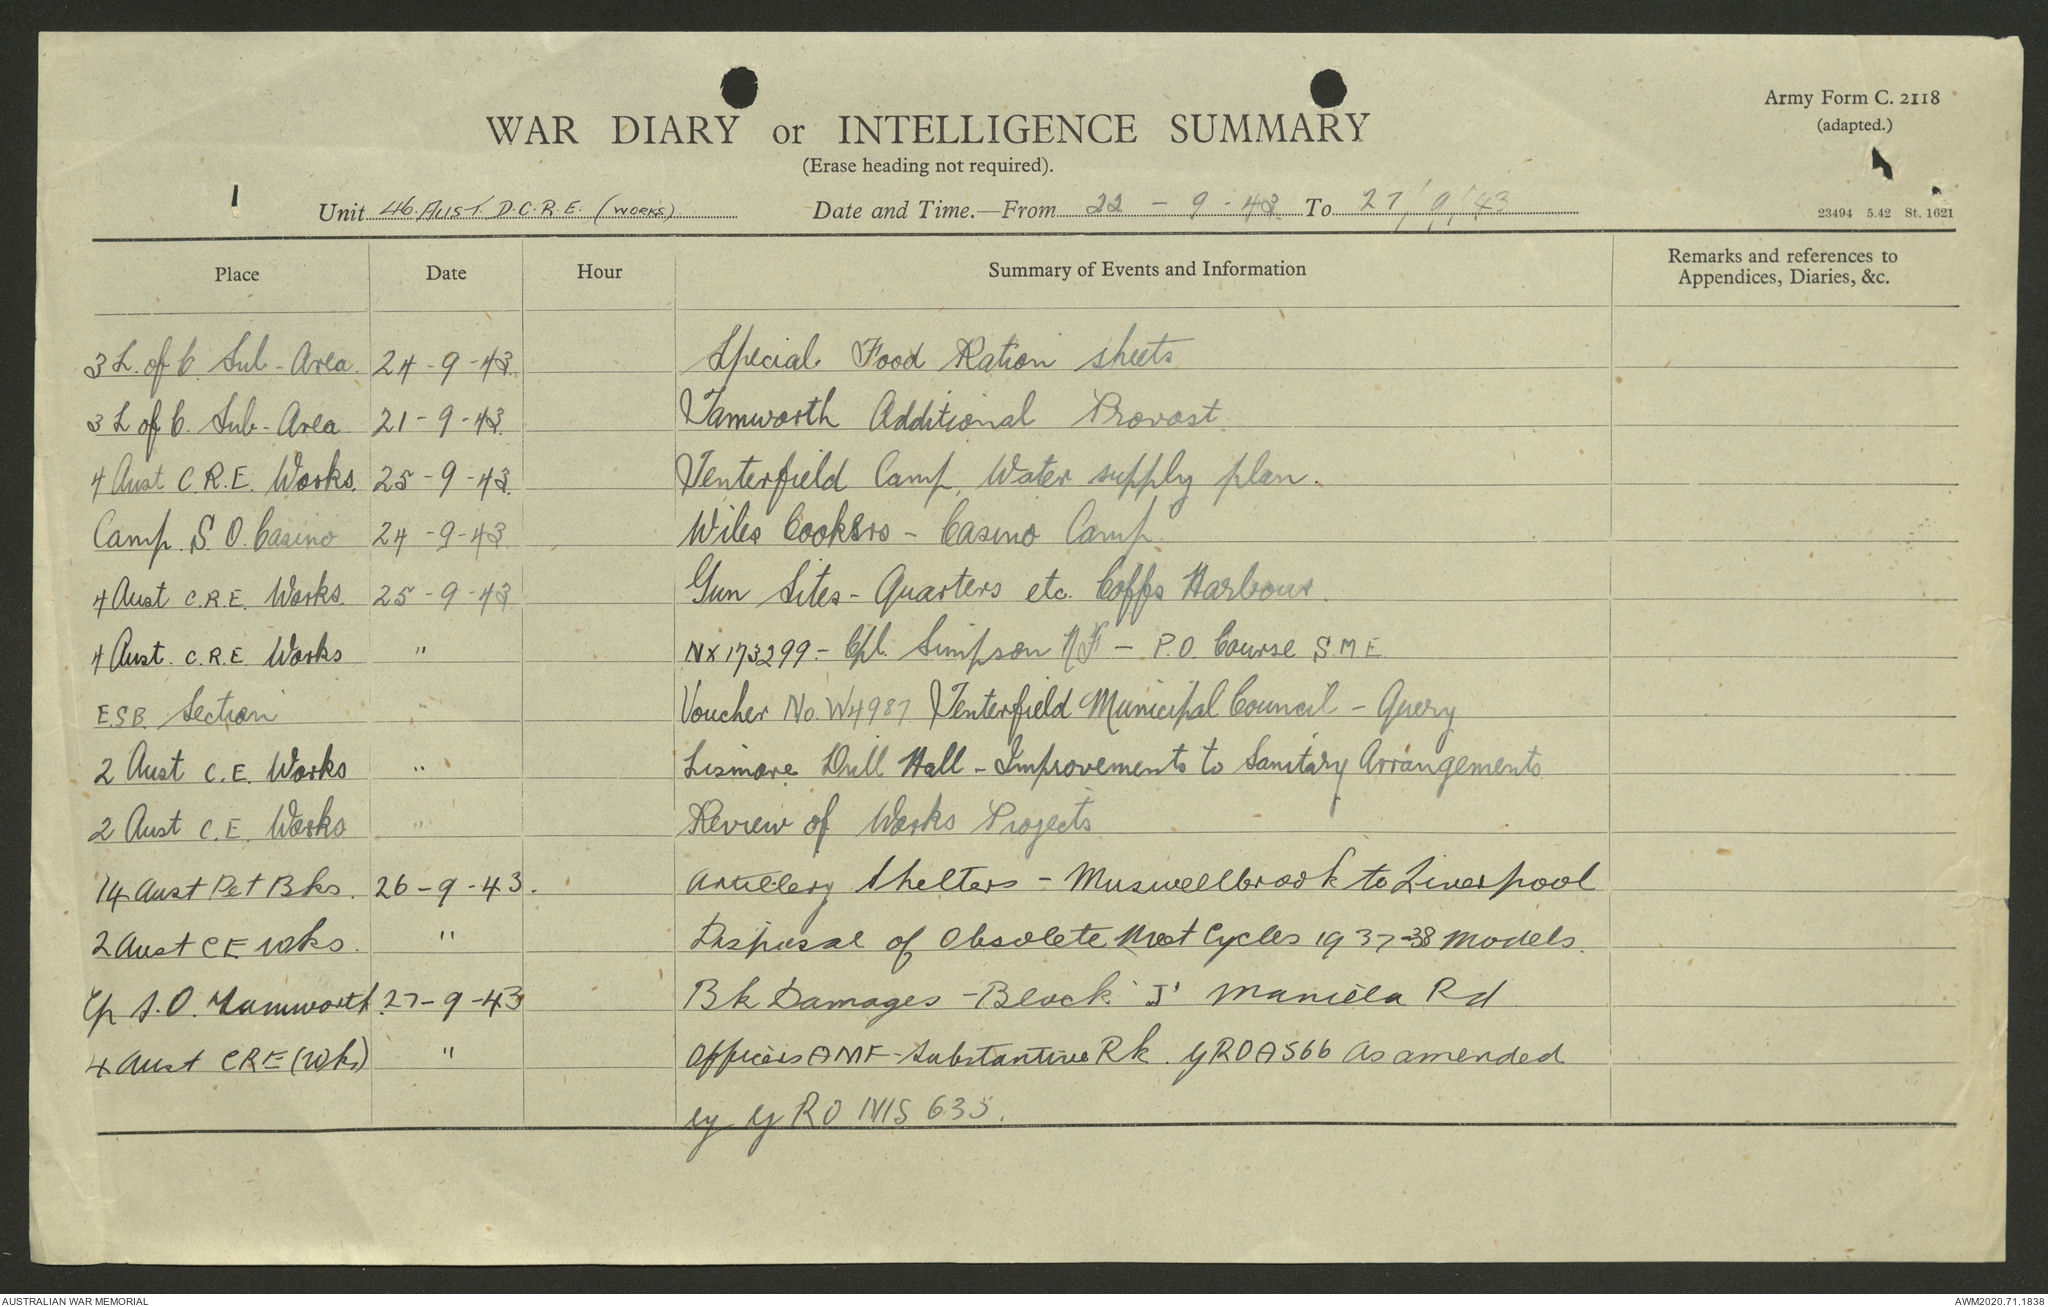 Army Form C. 2118
(adapted.)
WAR DIARY or INTELLIGENCE SUMMARY
(Erase heading not required).
Unit 46. AUST. D.C.R.E. (WORKS) Date and Time.—From 22 - 9 - 43 To 27/9/43
23494 5.42 St. 1621
Place Date Hour Summary of Events and Information Remarks and references to
Appendices, Diaries, &c.
3 L. of C. Sub-Area. 24-9-43. Special Food Ration sheets
3 L of C. Sub-Area 21-9-43. Tamworth Additional Provost.
4 Aust C.R.E. Works. 25-9-43. Tenterfield Camp, Water supply plan.
Camp. S.O. Casino 24-9-43. Wiles Cookers - Casino Camp.
4 Aust C.R.E. Works. 25-9-43 Gun Sites - Quarters etc. Coffs Harbour.
4 Aust. C.R.E Works " NX173299 - Cpl. Simpson - P.O. Course S.M.E
E.S.B. Section " Voucher No. W4987 Tenterfield Municipal Council - Query
2 Aust C.E. Works " Lismore Drill Hall - Improvements to Sanitary Arrangements
2 Aust C.E. Works " Review of Works Projects
14 Aust Pet Bks. 26-9-43. Artillery Shelters - Muswellbrook to Liverpool
2 Aust CE Wks. " Disposal of Obsolete Mot Cycles 1937-38 Models.
Cp S.O. Tamworth. 27-9-43 Bk Damages - Block 'J' Manilla Rd
4 Aust CRE (Wks) " Officers AMF - Substantive Rk. GRO A566 As amended
by GRO 635.
AUSTRALIAN WAR MEMORIAL
AWM2020.71.1838